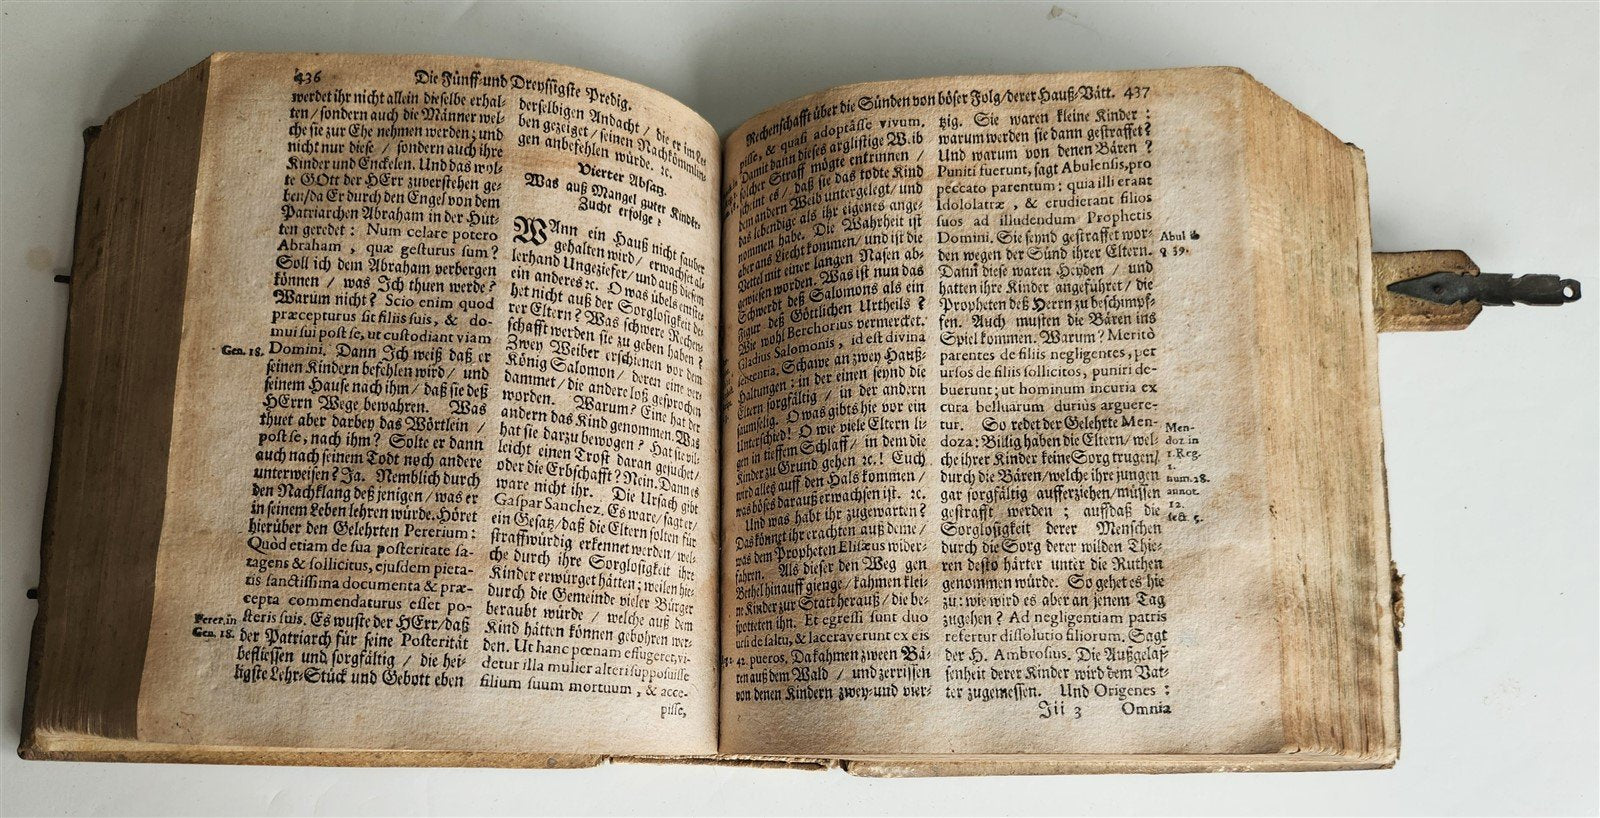 436
Die Fünff-und Dreyssigste Predig.
werdet ihr nicht allein dieselbe erhal-
ten / sondern auch die Männer wel-
che sie zur Ehe nehmen werden; und
nicht nur diese / sondern auch ihre
Kinder und Enckelen. Und das wol-
te GOtt der HErr zuverstehen ge-
ben / da Er durch den Engel von dem
Patriarchen Abraham in der Hüt-
ten geredet: Num celare potero
Abraham, quæ gesturus sum?
Soll ich dem Abraham verbergen
können / was Ich thuen werde?
Warum nicht? Scio enim quod
præcepturus sit filiis suis, & do-
mui sui post se, ut custodiant viam
Gen. 18.
Domini. Dann Ich weiß daß er
seinen Kindern befehlen wird / und
seinem Hause nach ihm / daß sie deß
HErrn Wege bewahren. Was
thuet aber darbey das Wörtlein /
post se, nach ihm? Solte er dann
auch nach seinem Todt noch andere
unterweisen? Ja. Nemblich durch
den Nachklang deß jenigen / was er
in seinem Leben lehren würde. Höret
hierüber den Gelehrten Pererium:
Quòd etiam de sua posteritate sa-
tagens & sollicitus, ejusdem pieta-
tis sanctissima documenta & præ-
cepta commendaturus esset po-
Perer. in
Gen. 18.
steris suis. Es wuste der HErr / daß
der Patriarch für seine Posterität
beflissen und sorgfältig / die hei-
ligste Lehr-Stück und Gebott eben
derselbigen Andacht / die er im Le-
ben gezeiget / seinen Nachkömmlin-
gen anbefehlen würde. ꝛc.
Vierter Absatz.
Was auß Mangel guter Kinder-
Zucht erfolge?
WAnn ein Hauß nicht sauber
gehalten wird / erwachset al-
lerhand Ungeziefer / und auß diesem
ein anderes ꝛc. O was übels entste-
het nicht auß der Sorglosigkeit de-
rer Eltern? Was schwere Rechen-
schafft werden sie zu geben haben?
Zwey Weiber erschienen vor dem
König Salomon / deren eine ver-
dammet / die andere loß gesprochen
worden. Warum? Eine hat der
andern das Kind genommen. Was
hat sie darzu bewogen? Hat sie vil-
leicht einen Trost daran gesuchet /
oder die Erbschafft? Nein. Dannes
ware nicht ihr. Die Ursach gibt
Gaspar Sanchez. Es ware / sagt er /
ein Gesatz / daß die Eltern solten für
straffwürdig erkennet werden / wel-
che durch ihre Sorglosigkeit ihre
Kinder erwürget hätten; weilen hie-
durch die Gemeinde vieler Bürger
beraubt würde / welche auß dem
Kind hätten können gebohren wer-
den. Ut hanc pœnam effugeret, vi-
detur illa mulier alteri supposuisse
filium suum mortuum, & acce-
pisse,
Rechenschafft über die Sünden von böser Folg / derer Hauß-Vätt. 437
pisse, & quasi adoptâsse vivum.
Damit dann dieses arglistige Weib
solcher Straff mögte entrinnen /
scheint es / daß sie das todte Kind
dem andern Weib untergelegt / und
das lebendige als ihr eigenes ange-
nommen habe. Die Wahrheit ist
aber ans Liecht kommen / und ist die
Vettel mit einer langen Nasen ab-
gewiesen worden. Was ist nun das
Schwerdt deß Salomons als ein
Figur deß Göttlichen Urtheils?
Wie wohl Berchorius vermercket.
Gladius Salomonis, id est divina
sententia. Schawe an zwey Hauß-
Haltungen: in der einen seynd die
Eltern sorgfältig / in der andern
saumselig. O was gibts hie vor ein
Unterschied! O wie viele Eltern li-
gen in tieffem Schlaff / in dem die
Kinder zu Grund gehen ꝛc.! Euch
wird alles auff den Hals kommen /
was böses darauß erwachsen ist. ꝛc.
Und was habt ihr zugewarten?
Das könnet ihr erachten auß deme /
was dem Propheten Elisæus wider-
fahren. Als dieser den Weg gen
Bethel hinauff gienge / kahmen klei-
ne Kinder zur Statt herauß / die be-
spotteten ihn. Et egressi sunt duo
ursi de saltu, & laceraverunt ex eis
42. pueros. Da kahmen zween Bä-
ren auß dem Wald / und zerrissen
von denen Kindern zwey-und vier-
tzig. Sie waren kleine Kinder:
warum werden sie dann gestraffet?
Und warum von denen Bären?
Puniti fuerunt, sagt Abulensis, pro
peccato parentum: quia illi erant
Idololatræ, & erudierant filios
suos ad illudendum Prophetis
Domini. Sie seynd gestraffet wor-
den wegen der Sünd ihrer Eltern.
Abul. ib.
q. 39.
Dann diese waren Heyden / und
hatten ihre Kinder angeführet / die
Propheten deß Herrn zu beschimpf-
fen. Auch musten die Bären ins
Spiel kommen. Warum? Meritò
parentes de filiis negligentes, per
ursos de filiis sollicitos, puniri de-
buerunt; ut hominum incuria ex
cura belluarum duriùs arguere-
tur. So redet der Gelehrte Men-
doza: Billig haben die Eltern / wel-
che ihrer Kinder keine Sorg trugen /
durch die Bären / welche ihre jungen
gar sorgfältig aufferziehen / müssen
gestrafft werden; auffdaß die
Men-
doz. in
1. Reg.
1.
num. 28.
annot.
12.
sect. 5.
Sorglosigkeit derer Menschen
durch die Sorg derer wilden Thie-
ren desto härter unter die Ruthen
genommen würde. So gehet es hie
zu: wie wird es aber an jenem Tag
zugehen? Ad negligentiam patris
refertur dissolutio filiorum. Sagt
der H. Ambrosius. Die Außgelas-
senheit derer Kinder wird dem Vat-
ter zugemessen. Und Origenes:
Jii 3
Omnia